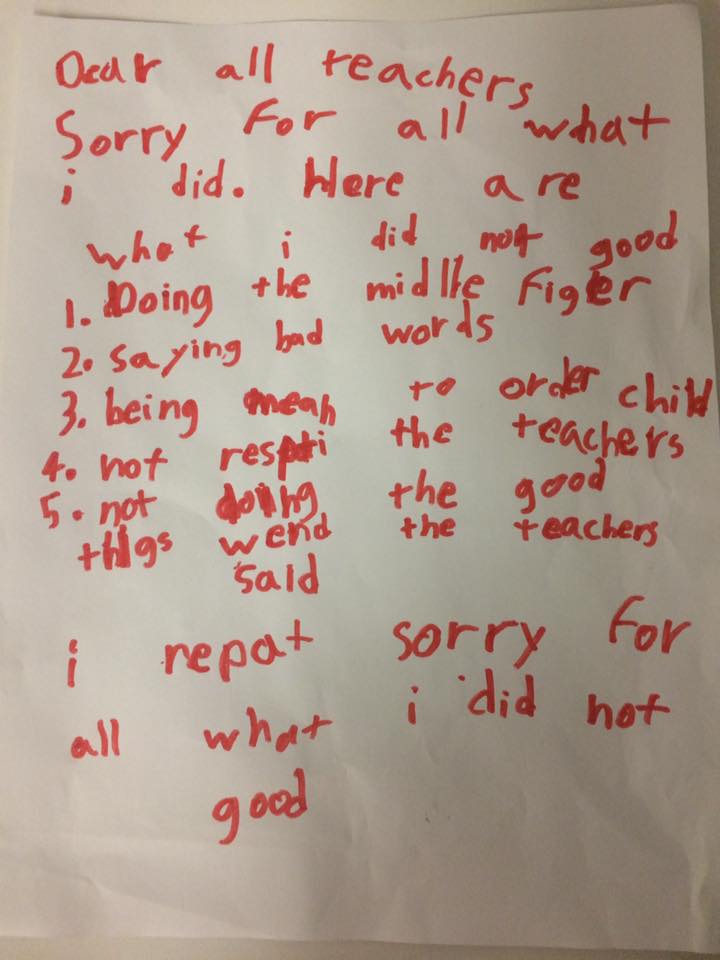 Dear all teachers
Sorry For all what
i did. Here are
what i did not good
1. Doing the middle Figer
2. saying bad words
3. being mean to order child
4. not respti the teachers
5. not doing the good
thigs wend the teachers
said
i repat sorry for
all what i did not
good